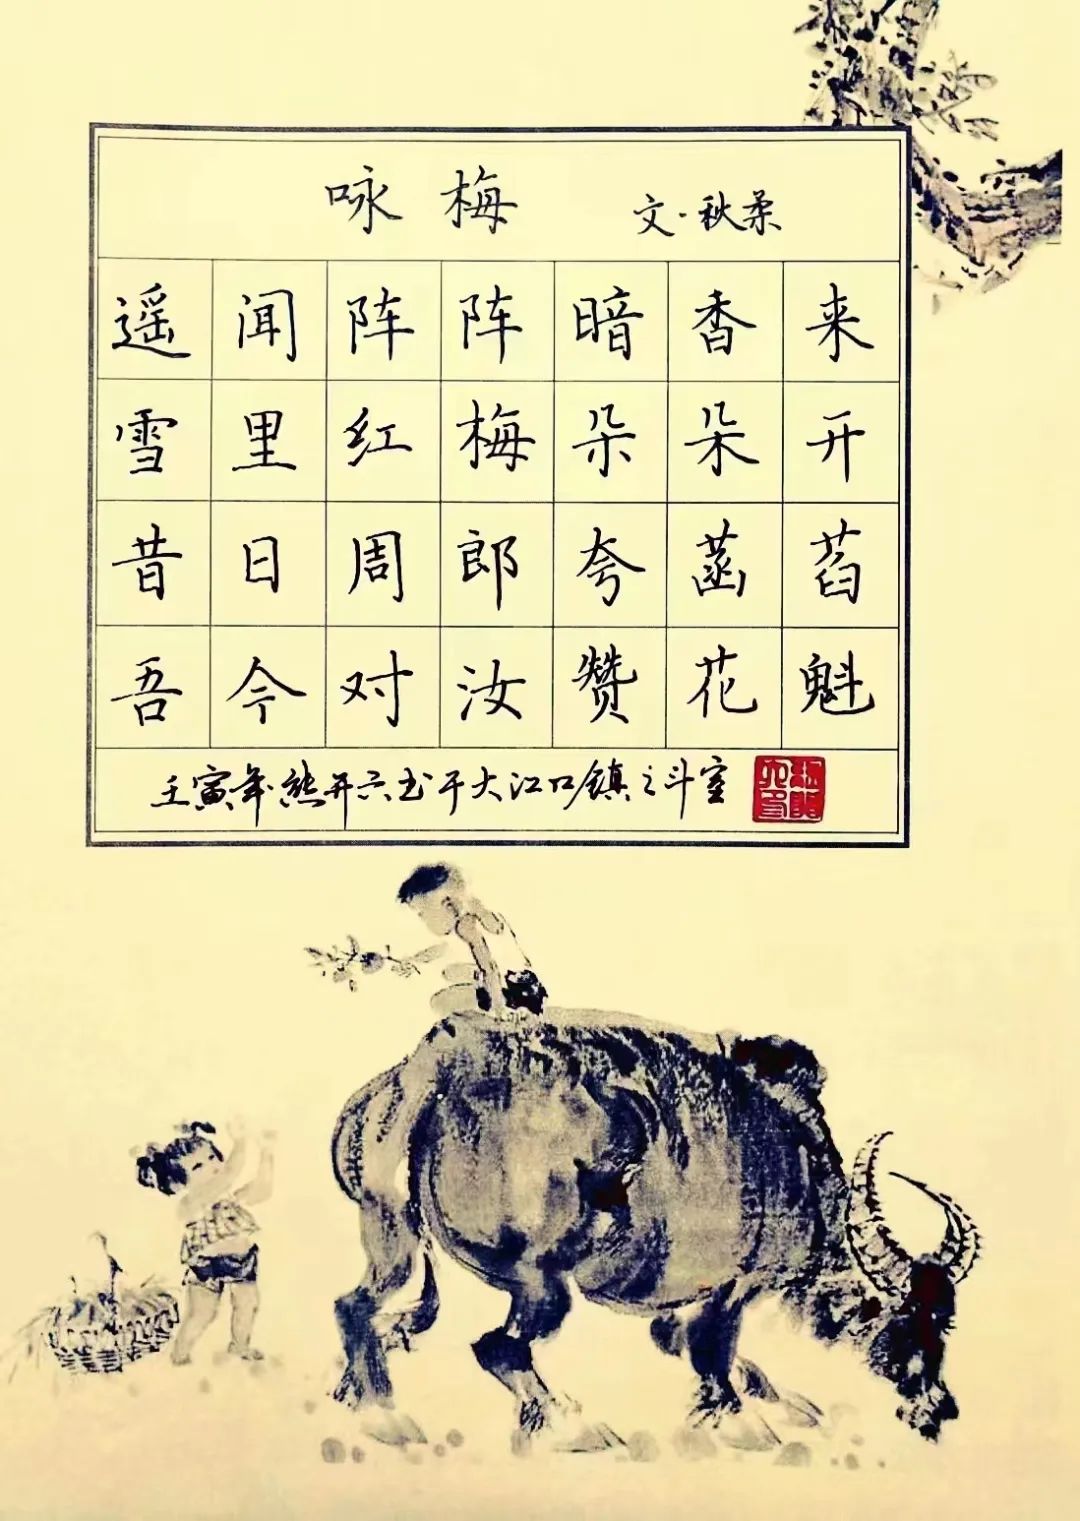 咏梅 文·秋柔
遥闻阵阵暗香来
雪里红梅朵朵开
昔日周郎夸菡萏
吾今对汝赞花魁
壬寅年熊开六书于大江口镇之斗室